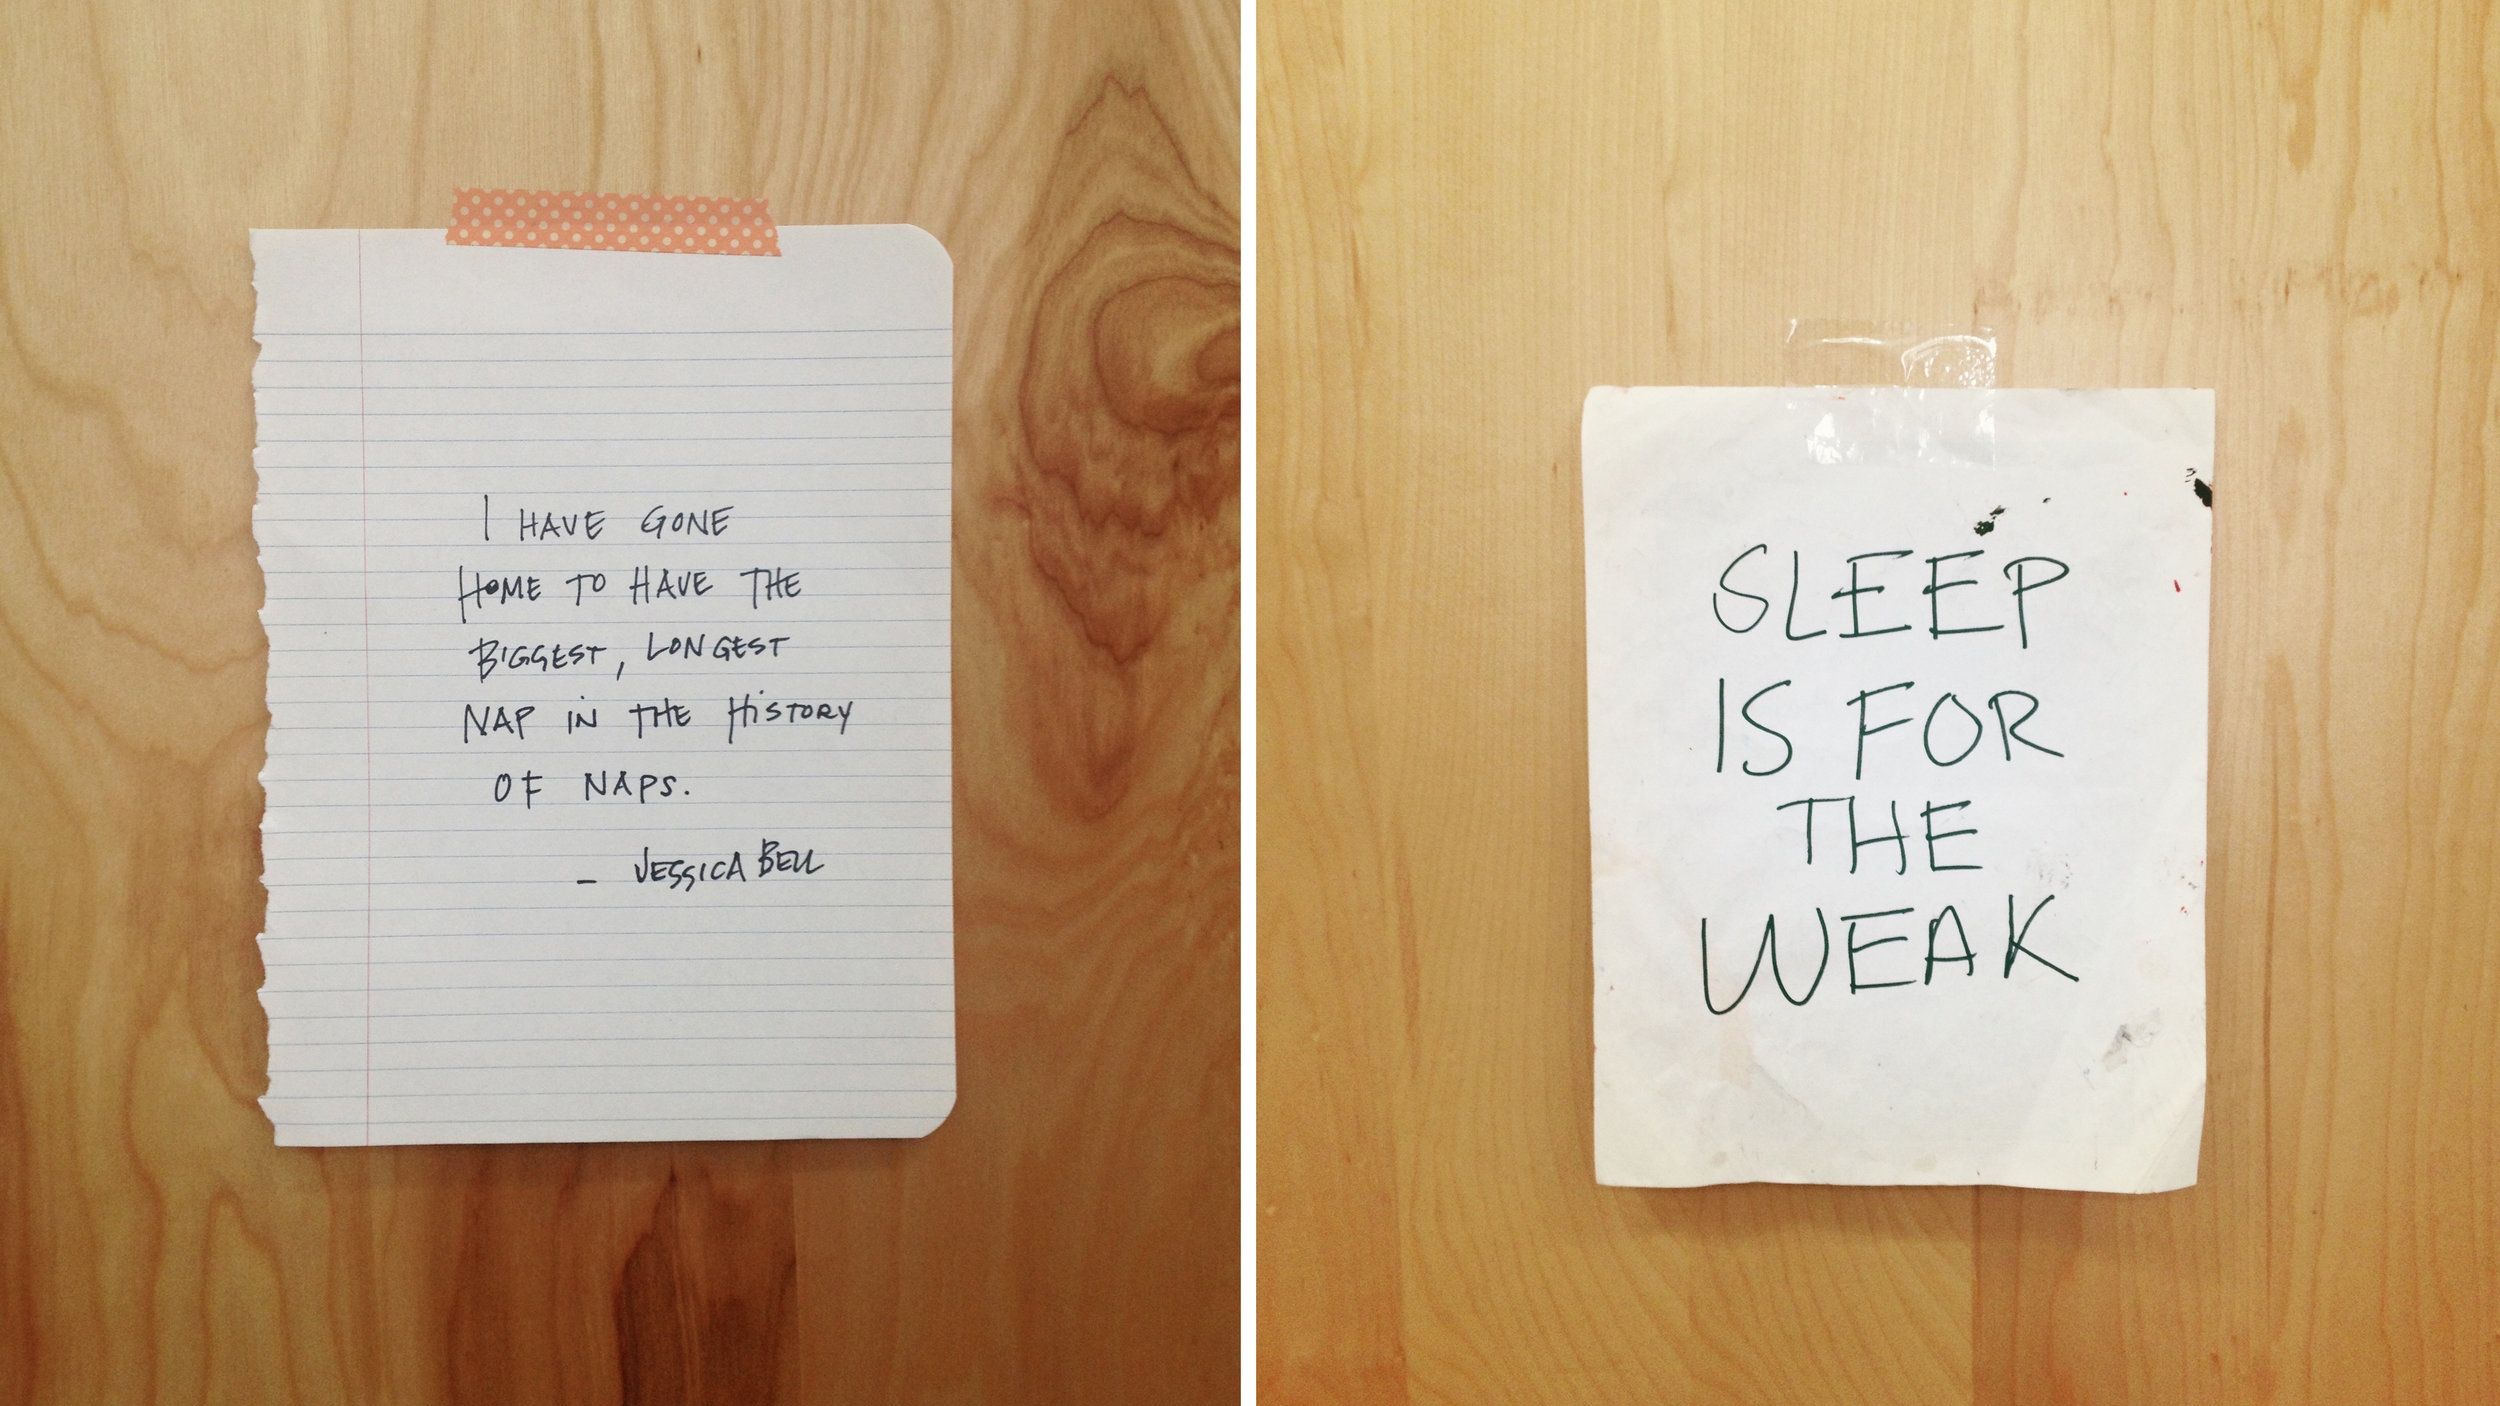 I HAVE GONE
HOME TO HAVE THE
BIGGEST, LONGEST
NAP IN THE HISTORY
OF NAPS.
– JESSICA BELL
SLEEP
IS FOR
THE
WEAK